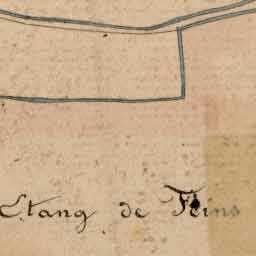 Etang de Feins